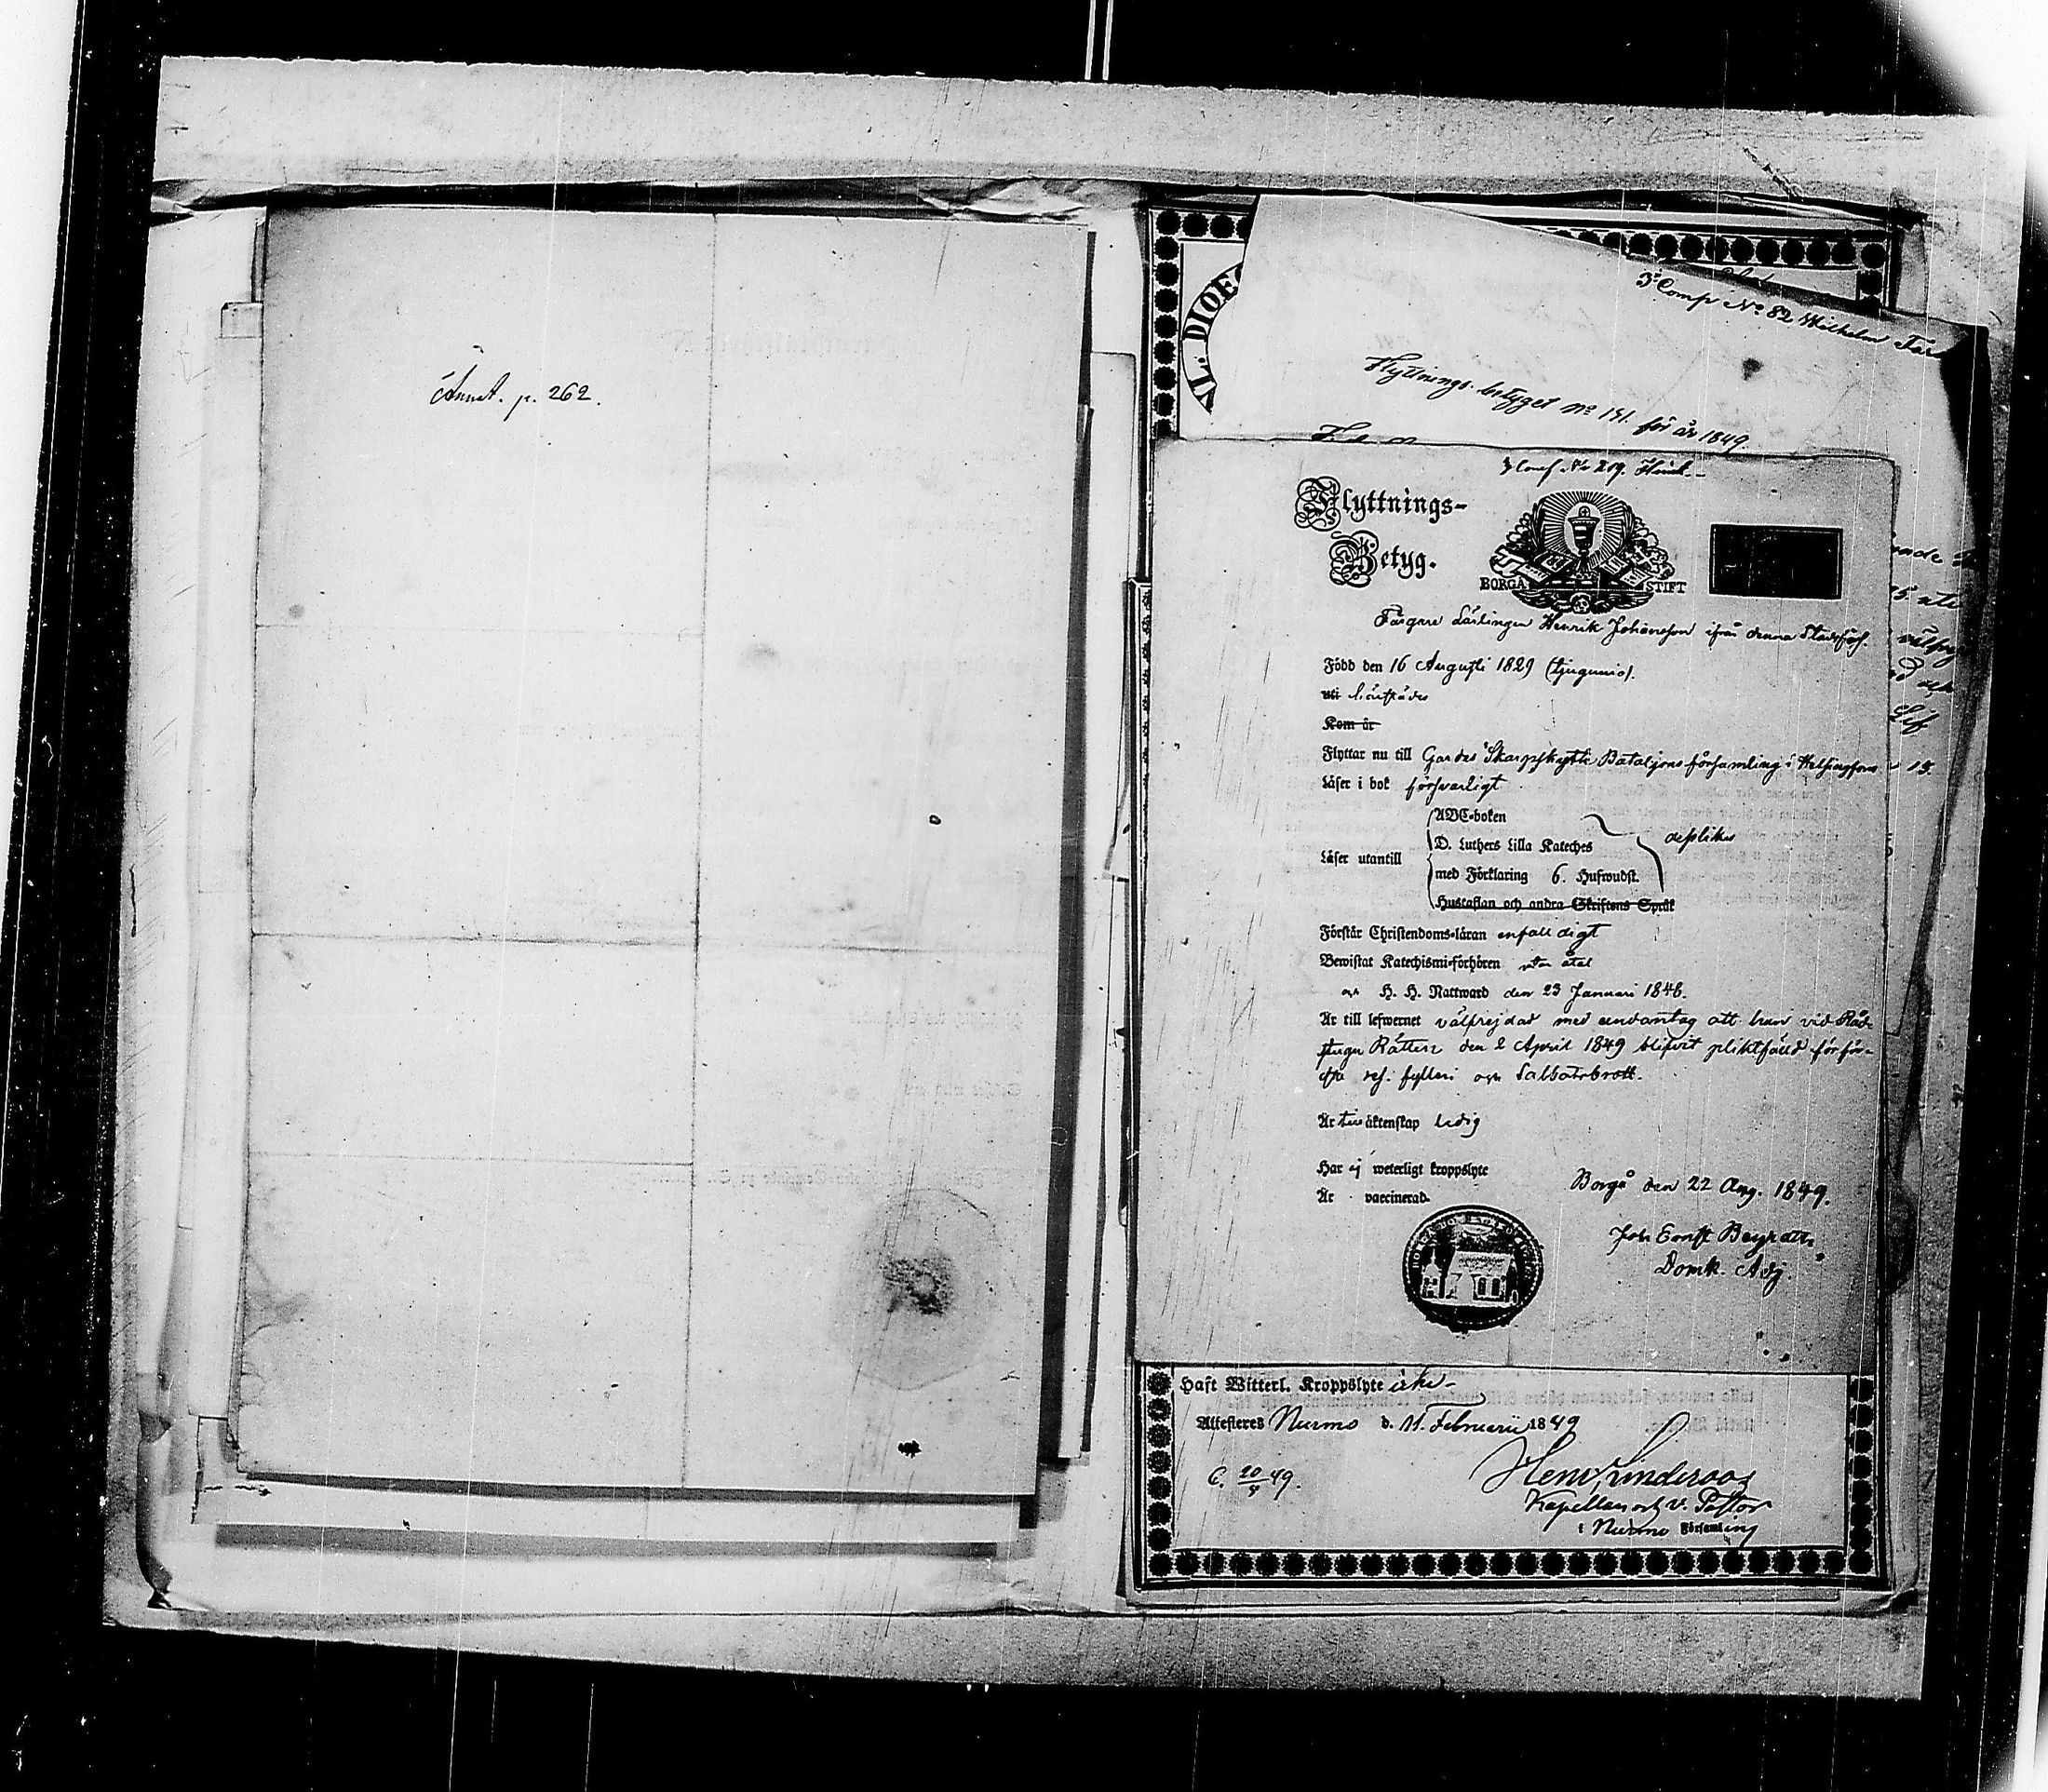 Annot. p. 262.
VL. DIOE
3 Comp No 82 Wilhelm
Flyttnings-betyget No 141. för år 1849.
3 Comp No 219. Henrik
Flyttnings-
Betyg.
BORGÅ STIFT
Färgare Lärlingen Henrik Johansson ifrån denna Stadsförs.
Född den 16 Augusti 1829 (tjugunio).
uti
Kom år
Flyttar nu till Gardes Skarpskytte Bataljons församling i Helsingfors
Läser i bok försvarligt
ABC-boken
D. Luthers Lilla Kateches
Läser utantill
med Förklaring 6. Hufwudst.
Hustaflan och andra Skriftens Språk
Förstår Christendoms-läran enfaldigt
Bewistat Katechismi-förhören utan åtal
och H. H. Nattward den 23 Januari 1848.
Är till lefwernet välfrejdad med undantag att han vid Råd-
stugu Rätten den 2 April 1849 blifvit pliktfälld för för-
sta res. fylleri och Sabbatsbrott.
Är till äktenskap ledig
Har ej weterligt kroppslyte
Är vaccinerad.
Borgå den 22 Aug. 1849.
Joh Ernst
Domk. Adj.
Haft Witterl. Kroppslyte icke
Attesteres Nurmo d. 11. Februarii 1849
C. 20/4 49.
Henr. Linderoos
Kapellan och v. Pastor
i Nurmo Församling